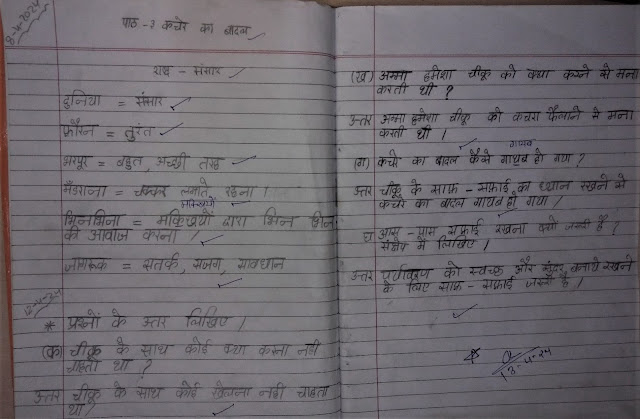 8-4-2024
पाठ - 2 कचरे का बादल
शब्द - संसार
दुनिया = संसार
फ़ौरन = तुरंत
भरपूर = बहुत, अच्छी तरह
मँडराना = चक्कर लगाते, रहना ।
मक्खियों
भिनभिना = मक्खियों द्वारा भिन भिन
की आवाज करना ।
जागरूक = सतर्क, सजग, सावधान
* प्रश्नों के उतर लिखिए ।
(क) चीकू के साथ कोई क्या करना नही
चाहता था ?
उतर चीकू के साथ कोई खेलना नही चाहता
था ।
(ख) अम्मा हमेशा चीकू को क्या करने से मना
करती थी ?
उतर अम्मा हमेशा चीकू को कचरा फैलाने से मना
करती थी ।
गायब
(ग) कचरे का बादल कैसे गायब हो गया ?
उतर चीकू के साफ़ - सफ़ाई का ध्यान रखने से
कचरे का बादल गायब हो गया ।
घ आस - पास सफ़ाई रखना क्यों जरूरी है ?
संक्षेप में लिखिए ।
उतर पर्यावरण को स्वच्छ और सुंदर बनाये रखने
के लिए साफ़ - सफ़ाई जरूरी है ।
13-4-24